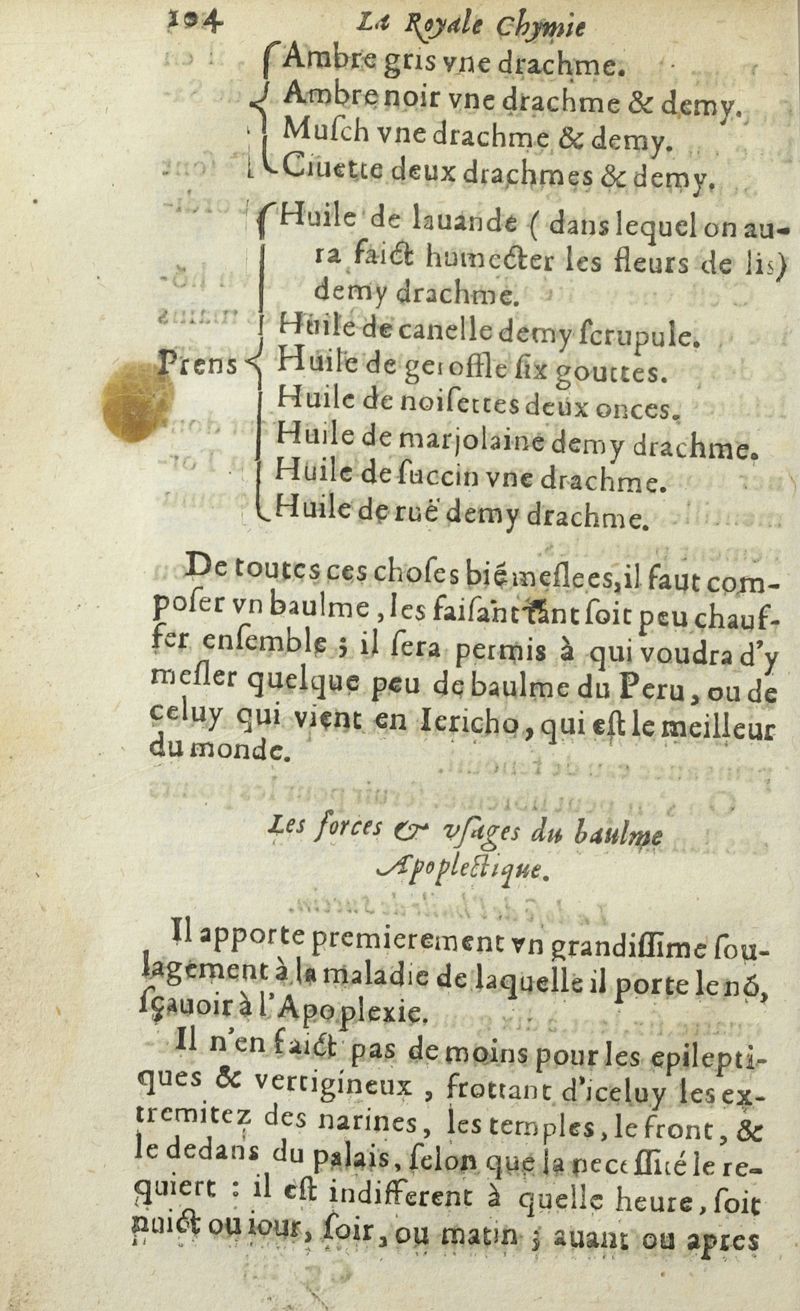 104 La Royale Chymie
Ambre gris vne drachme.
Ambre noir vne drachme & demy.
Muſch vne drachme & demy.
Ciuette deux drachmes & demy.
Huile de lauande ( dans lequel on au-
ra faict humecter les fleurs de lis)
demy drachme.
Huile de canelle demy ſcrupule.
Prens Huile de geroffle ſix gouttes.
Huile de noiſettes deux onces.
Huile de marjolaine demy drachme.
Huile de ſuccin vne drachme.
Huile de ruë demy drachme.
De toutes ces choſes biẽ meſlees, il faut com-
poſer vn baulme, les faiſant tant ſoit peu chauf-
fer enſemble ; il ſera permis à qui voudra d'y
meſler quelque peu de baulme du Peru, ou de
celuy qui vient en Iericho, qui eſt le meilleur
du monde.
Les forces & vſages du baulme
Apoplectique.
Il apporte premierement vn grandiſſime ſou-
lagement à la maladie de laquelle il porte le nõ,
ſçauoir à l'Apoplexie.
Il n'en faict pas de moins pour les epilepti-
ques & vertigineux , frottant d'iceluy les ex-
tremitez des narines, les temples, le front, &
le dedans du palais, ſelon que la neceſſité le re-
quiert : il eſt indifferent à quelle heure, ſoit
nuict ou iour, ſoir, ou matin ; auant ou apres